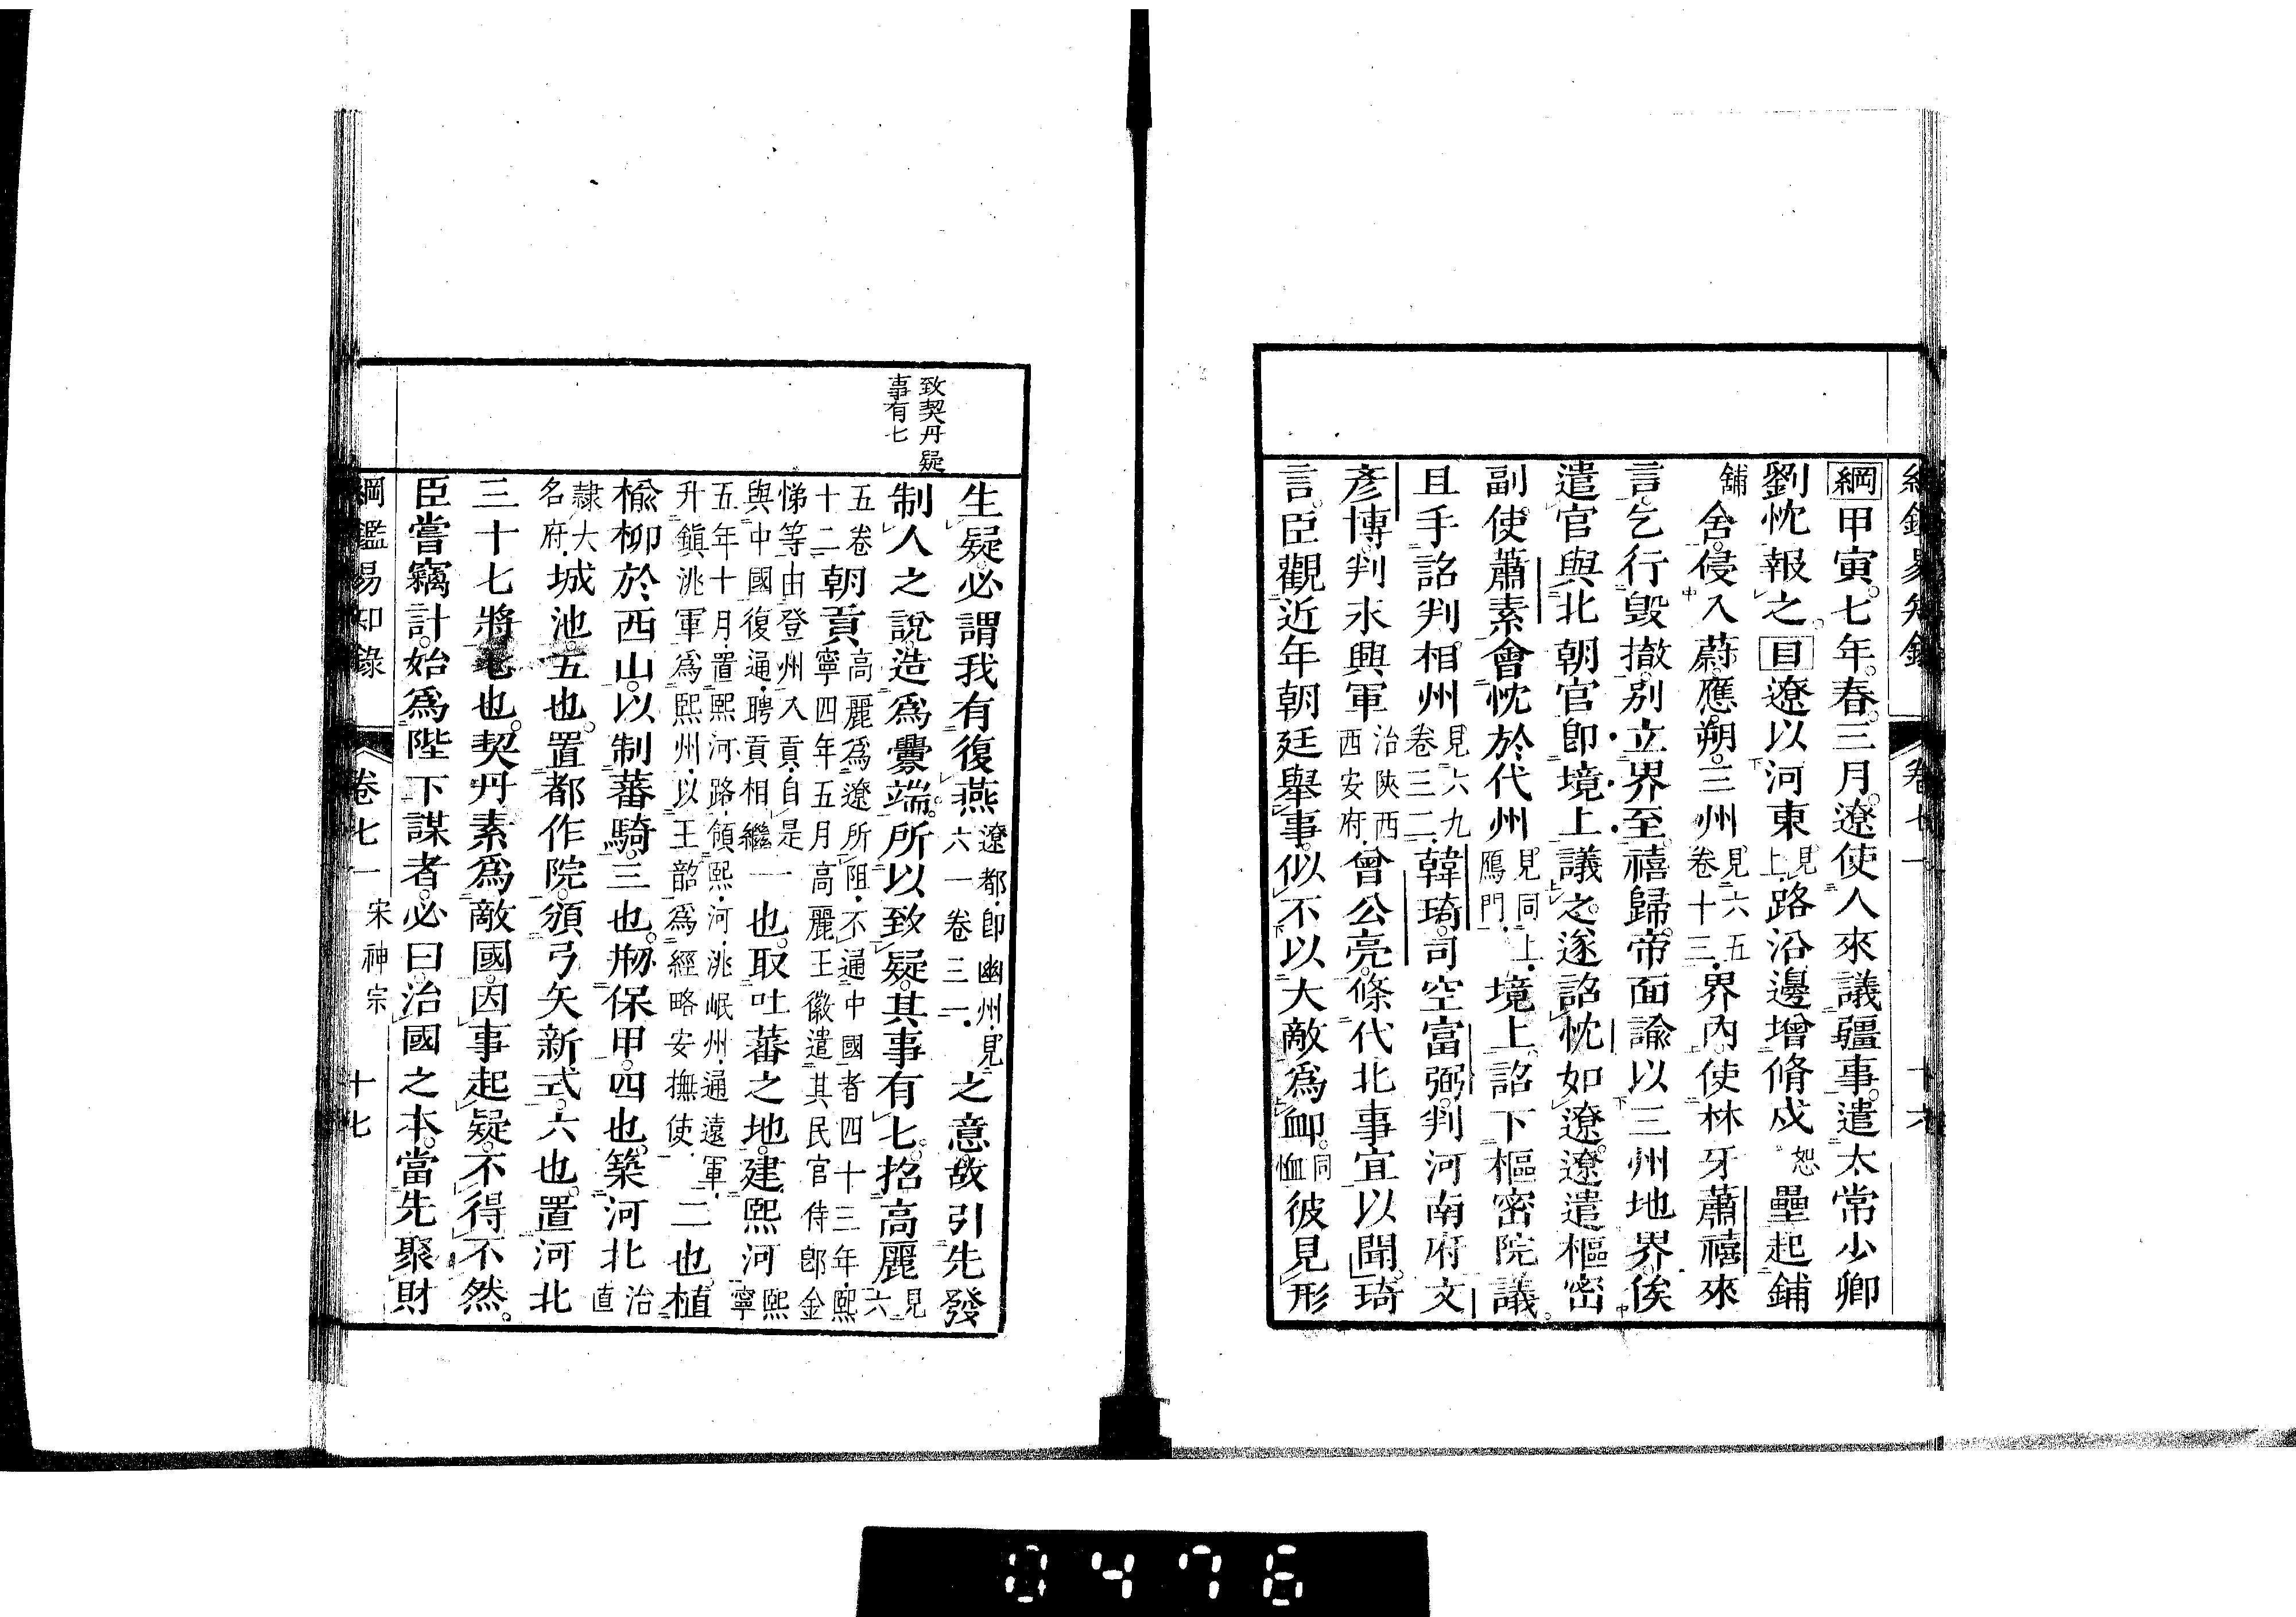 綱鑑易知錄 卷七一 十六
綱甲寅。七年。春。三月。遼使人來議疆事。遣太常少卿
劉忱報之。目遼以河東見上路沿邊增脩戍壘恕起鋪
鋪舍。侵入蔚。應。朔。三州見六五卷十三界內。使林牙蕭禧來
言。乞行毀撤。別立界至。禧歸。帝面諭以三州地界。俟
遣官與北朝官卽境上議之。遂詔忱如遼。遼遣樞密
副使蕭素會忱於代州見同上鴈門境上。詔下樞密院議。
且手詔判相州見六九卷三二韓琦。司空富弼。判河南府文
彥博。判永興軍治陝西西安府曾公亮。條代北事宜以聞。琦
言。臣觀近年朝廷舉事。似不以大敵爲卹。同恤彼見形
致契丹疑
事有七
生疑。必謂我有復燕遼都卽幽州見六一卷三一之意。故引先發
制人之說。造爲釁端。所以致疑。其事有七。招高麗見六
五卷十二朝貢高麗爲遼所阻不通中國者四十三年熙寧四年五月高麗王徽遣其民官侍郎金
悌等由登州入貢自是與中國復通聘貢相繼一也。取吐蕃之地。建熙河熙寧
五年十月置熙河路領熙河洮岷州通遠軍升鎮洮軍爲熙州以王韶爲經略安撫使二也。植
楡柳於西山。以制蕃騎。三也。刱保甲。四也。築河北治直
隷大名府城池。五也。置都作院。頒弓矢新式。六也。置河北
三十七將。七也。契丹素爲敵國。因事起疑。不得不然。
臣嘗竊計。始爲陛下謀者。必曰。治國之本。當先聚財
綱鑑易知錄 卷七一 宋神宗 十七
0476